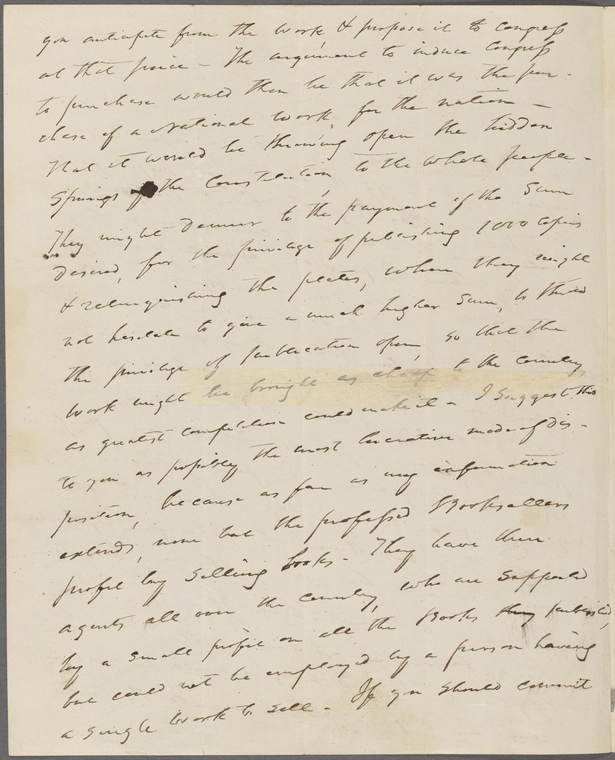 you anticipate from the work & propose it to Congress
at that price – The argument to induce Congress
to purchase would then be that it was the pur-
chase of a National work for the nation –
that it would be throwing open the hidden
Springs of the Constitution to the whole people –
They might Demur to the payment of the Sum
Desired, for the privilege of publishing 1000 Copies
& relinquishing the plates, when they might
not hesitate to give a much higher Sum, to throw
the privilege of publication open, so that the
work might be brought as cheap to the country,
as greatest competition could make it – I Suggest this
to you as possibly the most lucrative mode of dis-
position, because as far as my information
extends, none but the professed Booksellers
profit by Selling books – They have their
agents all over the Country, who are Supported
by a Small profit on all the Books published,
but could not be employed by a person having
a Single work to sell – If you should commit